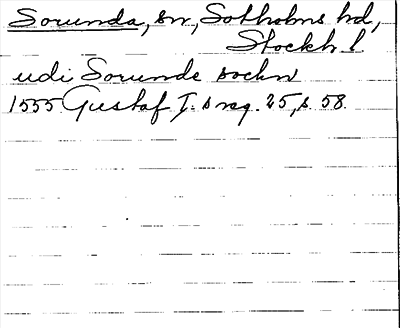 Sorunda, sn, Sotholms hd,
Stockh. l.
udi Sorunde sochn
1555 Gustaf I:s reg. 25, s. 58.